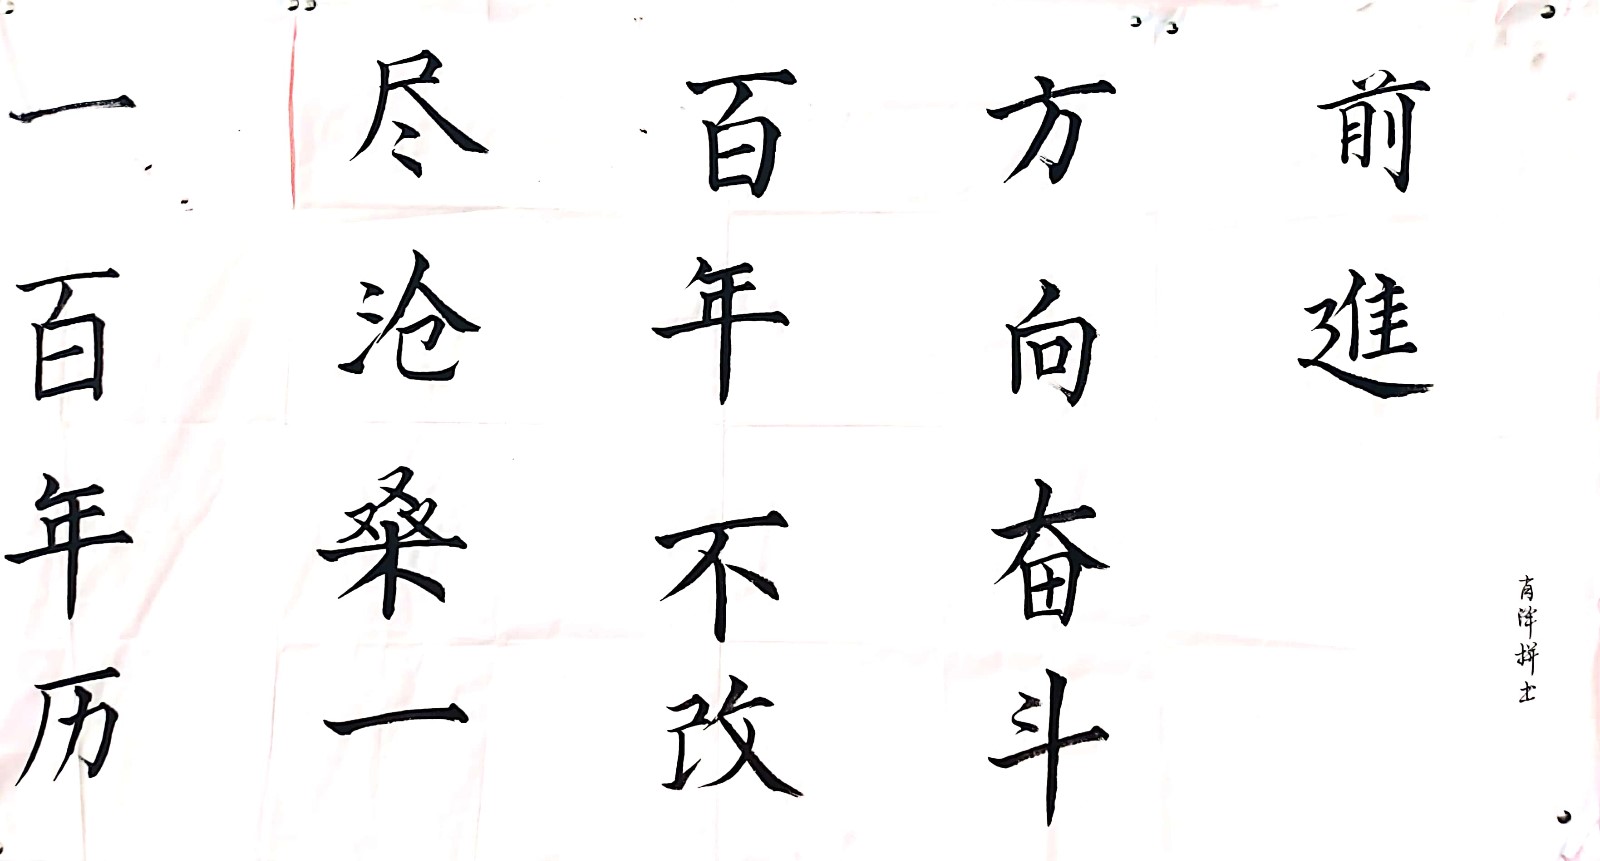 一百年历
尽沧桑一
百年不改
方向奋斗
前進